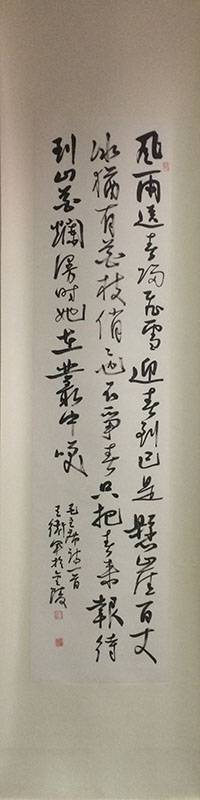 风雨送春归飞雪迎春到已是悬崖百丈
冰犹有花枝俏俏也不争春只把春来报待
到山花烂漫时她在丛中笑
毛主席词一首
王卫军于金陵